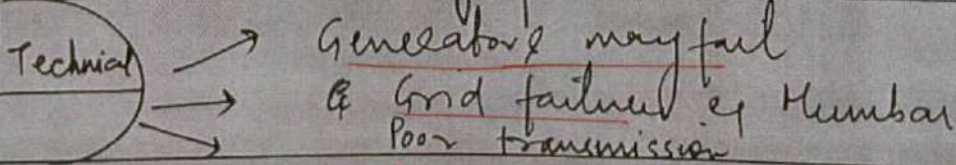 Technial
Generators may fail
& Grid failures eg Mumbai
Poor transmission